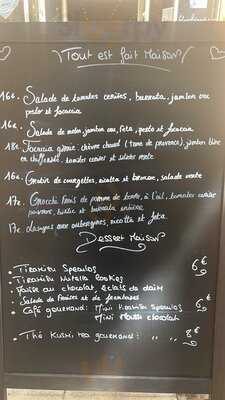 Tout est fait Maison
16€. Salade de tomates cerises, burrata, jambon cru
pesto et focaccia
16€. Salade de melon, jambon cru, feta, pesto et focaccia
18€. Focaccia garnie: chèvre chaud (Tome de provence), jambon blanc
en chiffonnade, tomates cerises et salade verte
16€. Gratin de courgettes, ricotta et salade verte
17€. Gnocchi frais de pomme de terre, à l'ail, tomates cerises
poivrons, et burrata entière
17€ Lasagnes aux aubergines, ricotta et feta
Dessert Maison
• Tiramisu Speculos 6€
• Tiramisu Nutella Cookies
au chocolat, éclats de daim
• Salade de Fraises et de framboises
• Café gourmand: Mini Tiramisu Speculos 6€
Mini chocolat
• Thé Kusmi tea gourmand: " " 8€